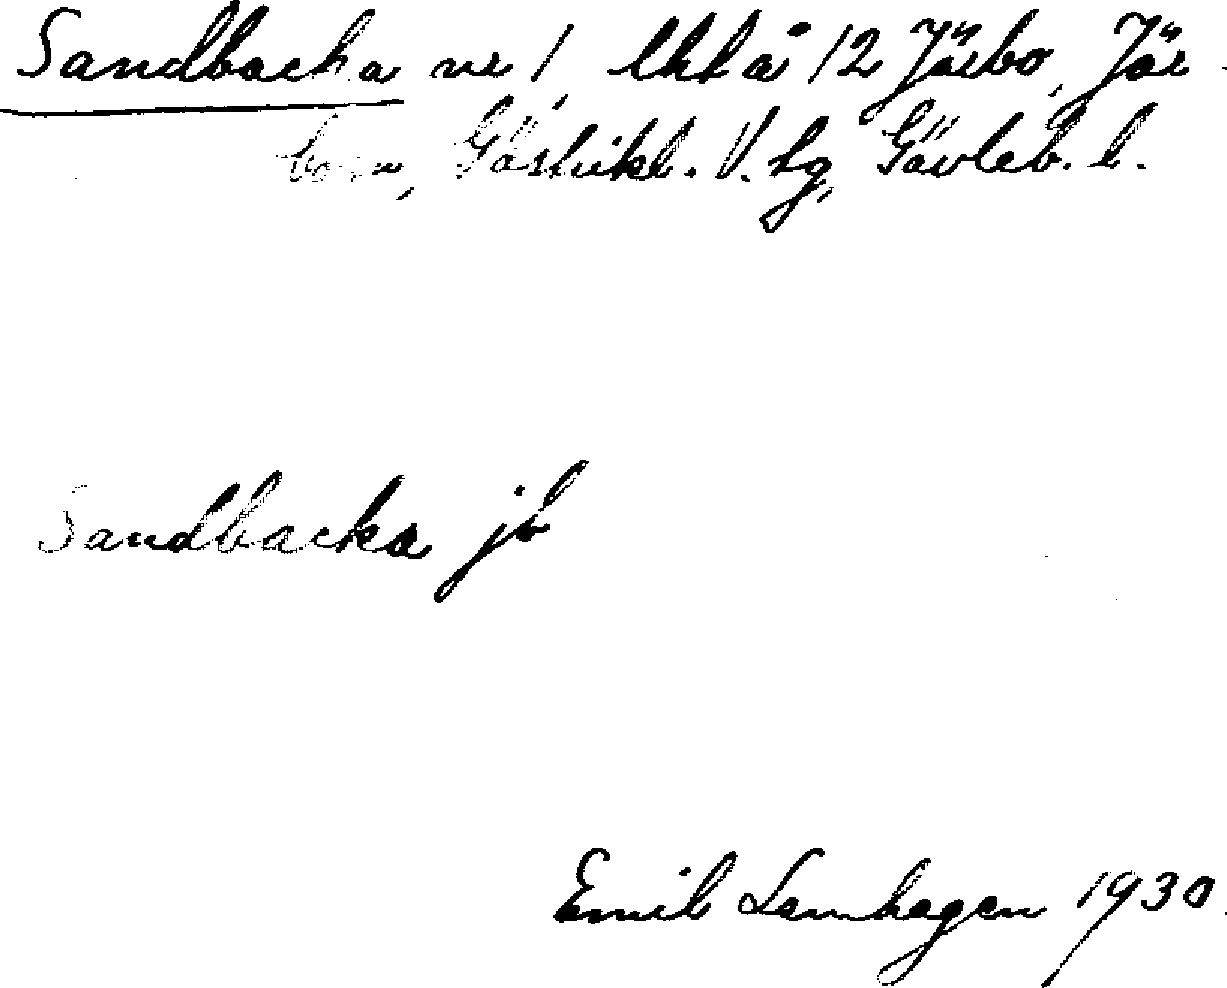 Sandbacka nr 1, lhl å 12 Järbo, Jär-
bo sn, Gästrikl. V. tg, Gävleb. l.
Sandbacka jb
Emil Lannhagen 1930.